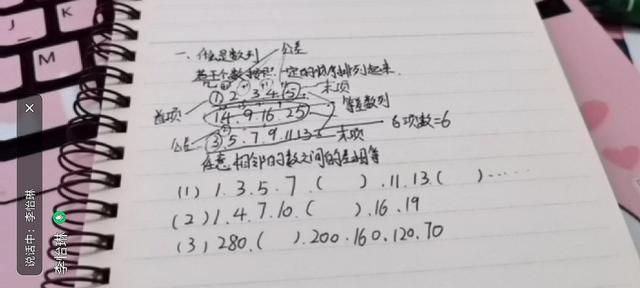 一、什么是数列 公差
若干个数按照一定的顺序排列起来.
首项 ① 2 3 4 5 末项
1 4.9.16.25 等差数列
公差 ③.5.7.9.11.13 末项 6 项数=6
任意相邻的数之间的差相等
(1) 1.3.5.7.( ).11.13.( )......
(2) 1.4.7.10.( ).16.19
(3) 280.( ).200.160.120.70
说话中: 李怡琳
李怡琳